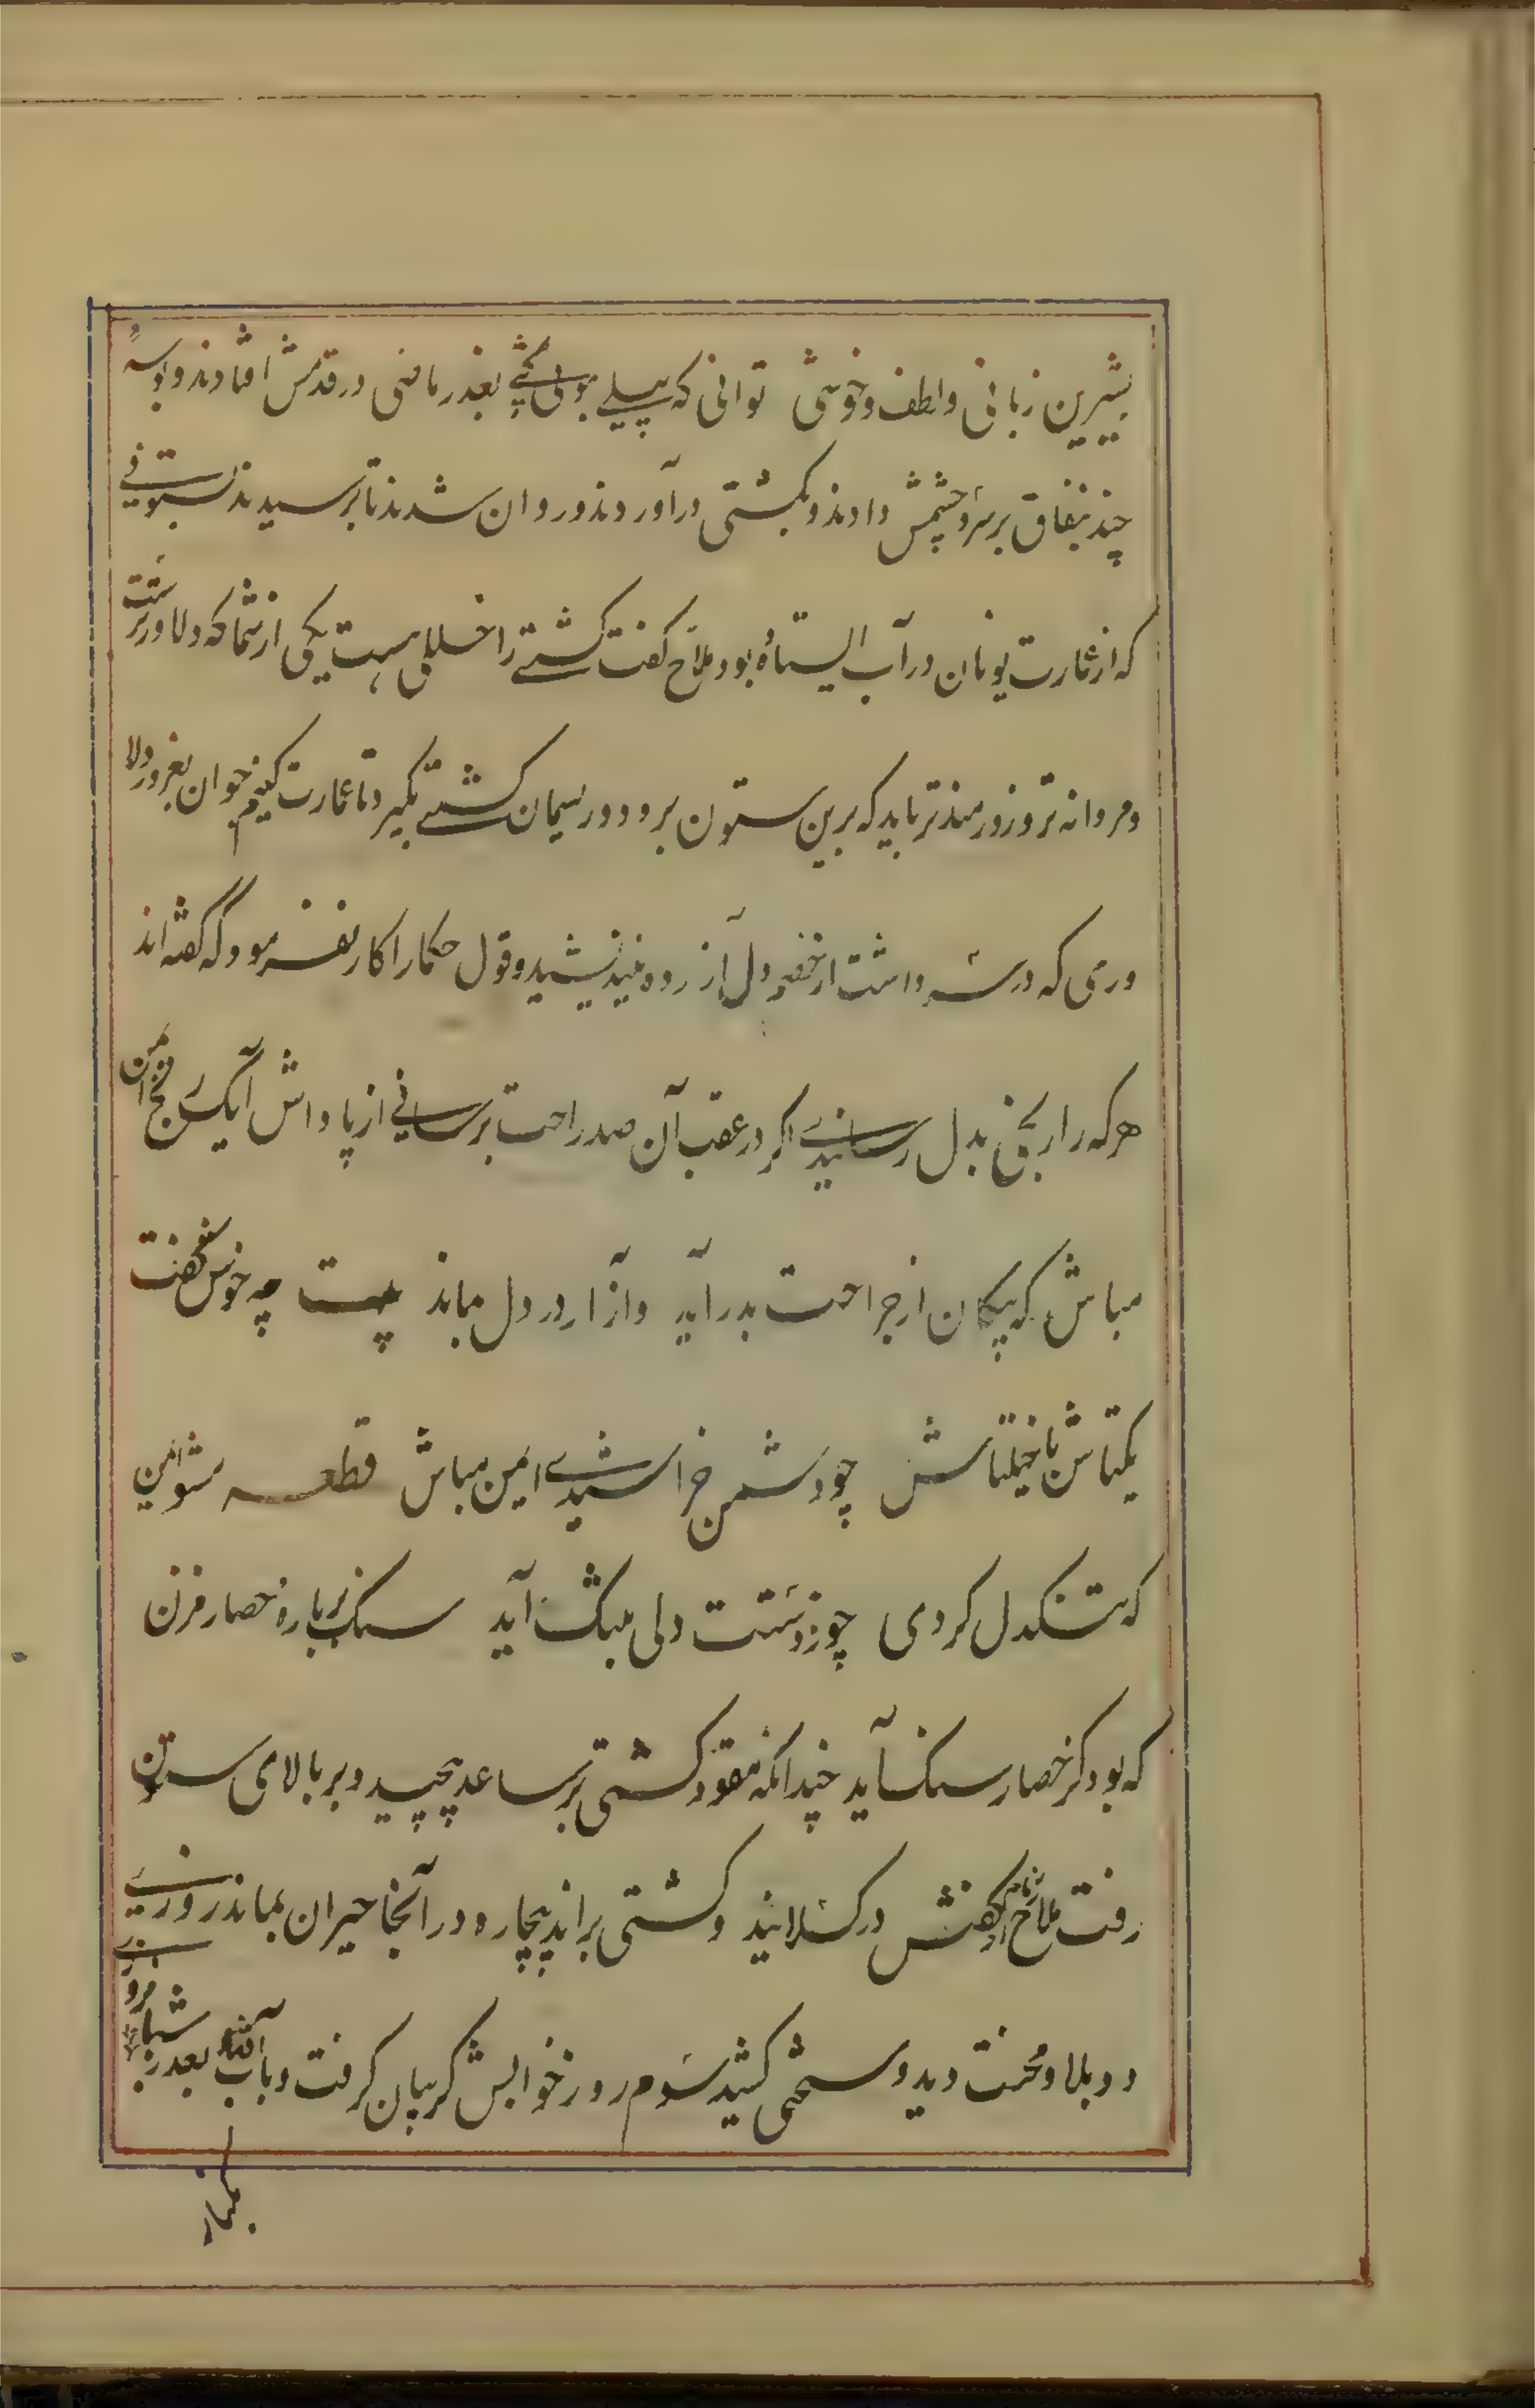 بشیرین زبانی و لطف و خوشی توانی که پیلے بموئی کشے بعذر ماضی در قدمش افتادند و بوسهٔ
چند بنفاق بر سر و چشمش دادند و بکشتی درآوردند و روان شدند تا برسیدند بستونے
که از عمارت یونان در آب ایستاده بود ملاح گفت کشتے را خللی هست یکی از شما که دلاورترست
و مردانه تر و زورمندتر باید که برین ستون برود و ریسمان کشتے بگیرد تا عمارت کنیم جوان بغرور دلا
وری که در سر داشت از خصم دل آزرده نیندیشید و قول حکما را کار نفرمود که گفته اند
هر که را رنجی بدل رسانیدے اگر در عقب آن صد راحت برسانی از پاداش آن یک رنج ایمن
مباش که پیکان از جراحت بدر آید و آزار در دل بماند بیت چه خوش گفت
یکتاش با خیلتاش چو دشمن خراشیدے ایمن مباش قطعه مشو ایمن
که تنگدل گردی چون ز دستت دلی بتنگ آید سنگ بر باره حصار مزن
که بود کز حصار سنگ آید چندانکه مقود کشتی بر ساعد پیچید و بر بالای ستون
رفت ملاح زمام از کفش در گسلانید و کشتی براند بیچاره در آنجا حیران بماند روزے
دو بلا و محنت دید و سختی کشید سوم روز خوابش گریبان گرفت و بآب انداخت بعد از شبانروزے
بکنار